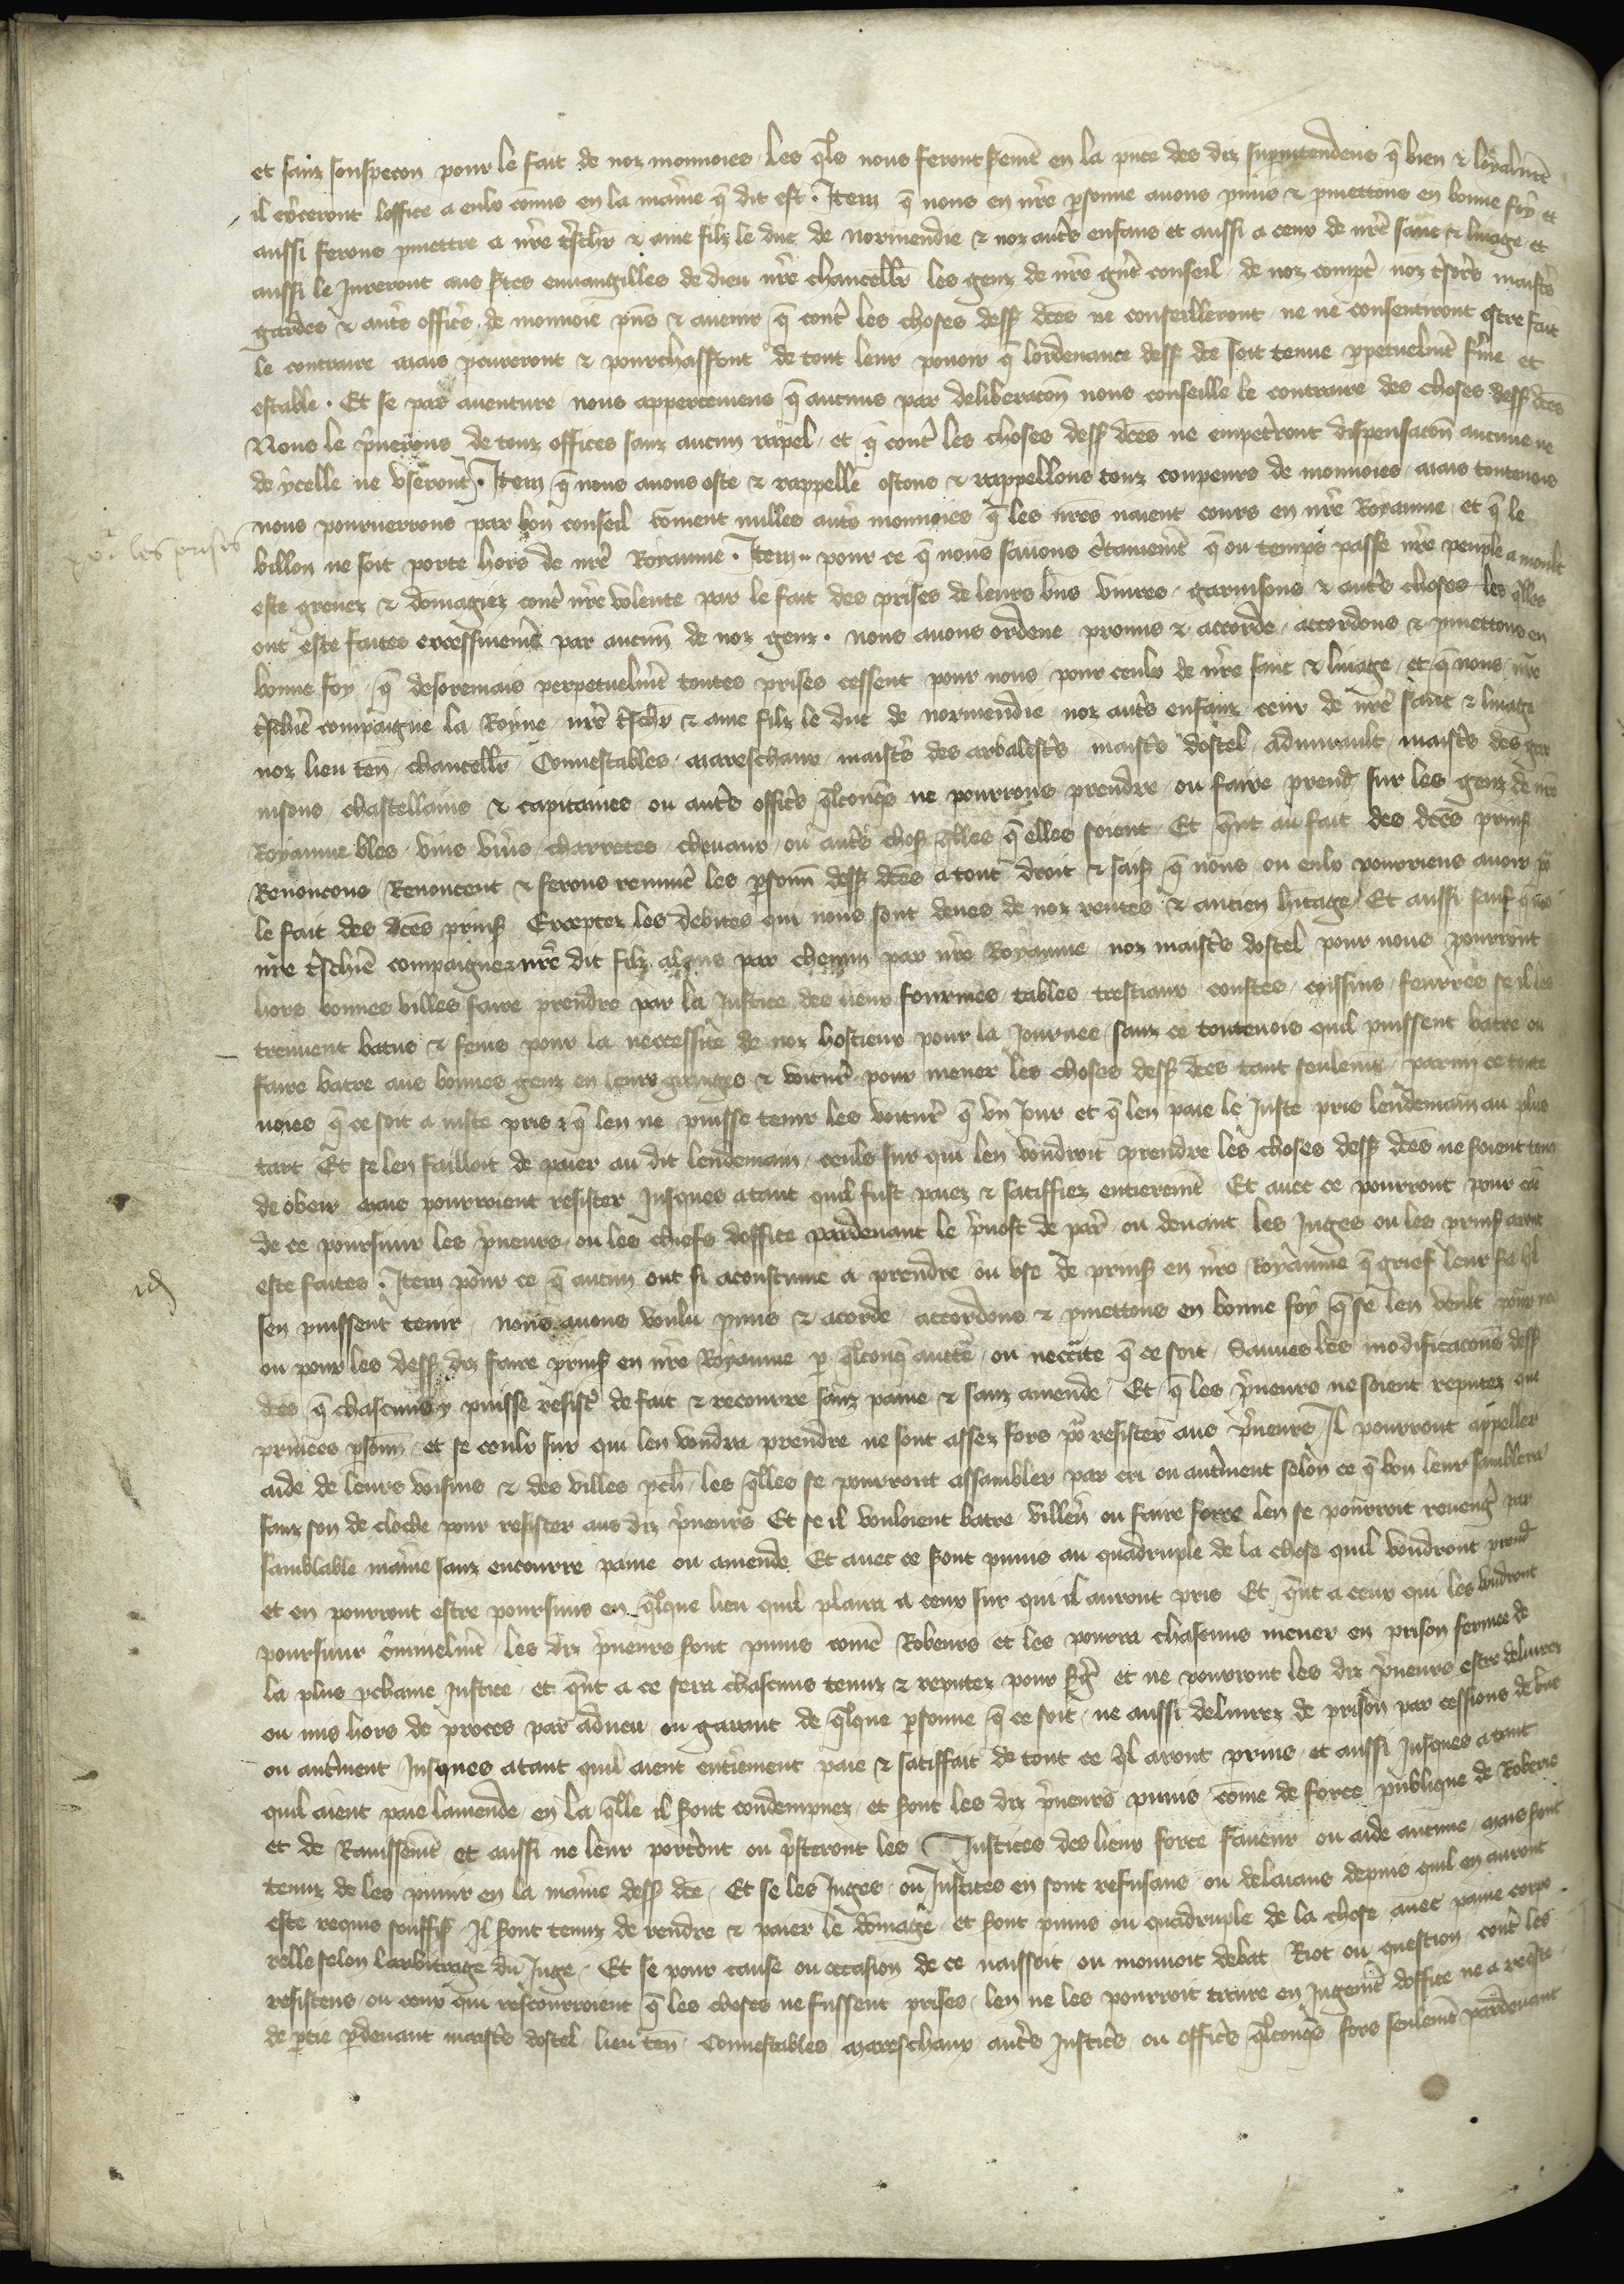 et sanz souspecon pour le fait de noz monnoies les q̃ls nous feront serm̃t en la p̃nce des diz sup̃intendens q̃ bien & loyalm̃t
il ex̃ceront loffice a eulx cõmis en la mañie q̃ dit est. Item q̃ nous en nr̃e p̃sonne avons p̃mis & p̃mettons en bonne foy et
aussi ferons p̃mettre a nr̃e t̃schr̃ & ame filz le duc de normendie & noz autr̃s enfans et aussi a ceux de nr̃e sanc & linage et
aussi le Jureront aus stes euuangilles de dieu nr̃e chancell̃r les genz de nr̃e gñt conseil de noz compt̃ noz t̃sor̃s maistr̃s
gardes & autr̃s offic̃s de monnoie p̃ns & avenir q̃ contr̃ les choses dess̃ dc̃es ne conseilleront ne ne consentiront estre fait
le contraire mais p̃cureront & pourchasseront de tout leur povoir q̃ lordenance dess̃ dc̃e soit tenue p̃petuelm̃t fr̃me et
estable. Et se par aventure nous apperceviens q̃ aucuns par deliberacoñ nous conseille le contraire des choses dess̃ dc̃es
Nous le p̃verons de touz offices sanz aucun rapel et q̃ contr̃ les choses dess̃ dc̃es ne empetr̃ont dispensacoñ aucune ne
de ycelle ne useront. Item q̃ nous avons oste & rappelle ostons & rappellons touz coupeurs de monnoies mais toutevois
nous pourverrons par bon conseil cõment nulles autr̃s monnoies q̃ les nr̃es naient cours en nr̃e Royaume et q̃ le
po᷑ les prises
billon ne soit porte hors de nr̃e Royaume. Item pour ce q̃ nous savons c̃tainem̃t q̃ ou temps passe nr̃e peuple a moult
este grevez & dõmagiez contr̃ nr̃e volente par le fait des prises de leurs bñs vivres garnisons & autr̃s choses les q̃lles
ont este faites excessivem̃t par aucuñ de noz genz. nous avons ordene promis & accorde accordons & p̃mettons en
bonne foy q̃ desoremais perpetuelm̃t toutes prises cessent pour nous pour ceulx de nr̃e sanc & linage et q̃ nous nr̃e
t̃schiẽ compaigne la Royne nr̃e t̃schr̃ & ame filz le duc de normendie noz autr̃s enfanz ceux de nr̃e sanc & linage
noz lieu teñ chancell̃r Connestables mareschaux maistr̃s des arbalestr̃s maistr̃s dostel admirault maistr̃s des gar
nisons chastellains & capitaines ou autr̃s offic̃s q̃lconq̃s ne pourrons prendre ou faire prend̃ sur les genz de nr̃e
Royaume bles vins viṽs charretes chevaux ou autr̃s chos̃ q̃lles q̃ elles soient Et q̃nt au fait des dc̃es prins̃
Renoncons Renoncent & ferons renonc̃ les p̃sonñ dess̃ dc̃es a tout droit & sais̃ q̃ nous ou eulx pourriens avoir po᷑
le fait des dc̃es prins̃ Exceptez les debites qui nous sont deues de noz rentes & ancien h̃itage Et aussi sauf q̃ nous
nr̃e t̃schiẽ compaigne & nr̃e dit filz alanz par chemin par nr̃e Royaume noz maistr̃s dostel pour nous pourront
hors bonnes villes faire prendre par la Justice des lieux fourmes tables trestiaux coustes coissins feurres se il les
treuvent batus & feins pour la neccessite de noz hostieux pour la Journee sanz ce toutevois quil puissent batre ou
faire batre aus bonnes genz en leurs granges & voitur̃ pour mener les choses dess̃ dc̃es tant seulem̃t parmi ce toute
voies q̃ ce soit a iuste pris & q̃ len ne puisse tenir les voitur̃ q̃ un Jour et q̃ len paie le Juste pris lendemain au plus
tart Et se len failloit de paier au dit lendemain ceulx sur qui len voudroit prendre les choses dess̃ dc̃es ne soient tenu
de obeir mais pourroient resister Jusques atant quil fust paiez & satiffiez entierem̃t Et avec ce pourront pour cã
de ce poursuir les p̃neurs ou les chiefs doffice pardevant le p̃vost de par̃ ou devant les Juges ou les prins̃ aront
este faites. Item pour ce q̃ aucun ont si acoustume a prendre ou use de prins̃ en nr̃e Royaume q̃ grief leur
sen puissent tenir nous avons voulu p̃mis & acorde accordons & p̃mettons en bonne foy q̃ se len veult pour nous
ou pour les dess̃ diz faire prins̃ en nr̃e Royaume p̃ q̃lconq̃ autt̃e ou necc̃ite q̃ ce soit Sauves les modificacoñs dess̃
dc̃es q̃ chascuns y puisse resist̃ de fait & recourre sanz paine & sanz amende Et q̃ les p̃neurs ne soient reputez que
privees p̃sonñ et se ceulx sur qui len voudra prendre ne sont assez fors po᷑ resister aus p̃neurs Il pourront appeller
aide de leurs voisins & des villes p̃ch̃ les q̃lles se pourront assambler par cri ou autr̃ment selon ce q̃ bon leur samblera
sanz son de cloche pour resister aus diz p̃neurs Et se il vouloient batre villen̉ ou faire force len se pourroit reveng̃ par
samblable mañie sanz encourre paine ou amende Et avec ce sont punis au quadruple de la chose quil voudront prend̃
et en pourront estre poursuis en q̃lque lieu quil plaira a ceux sur qui il auront pris Et q̃nt a ceux qui les voudront
poursuir c̃iminelm̃t les diz p̃neurs sont punis com̃e Robeurs et les pourra chascuns mener en prison fermee de
la plus p̃chaine Justice et q̃nt a ce sera chascuns tenuz & reputez pour s̃g̃ et ne pourront les diz p̃neurs estre delivrez
ou mis hors de proces par adveu ou garant de q̃lque p̃sonne q̃ ce soit ne aussi delivrez de prison par cessions de bñs
ou autr̃ment Jusques atant quil aient entir̃ement paie & satiffait de tout ce q̃l aront prins et aussi Jusques atant
quil aient paie lamende en la q̃lle il sont condempnez et sont les diz p̃neurs punis cõme de force publique de Roberie
et de Ravissem̃t et aussi ne leur portẽont ou p̃steront les Justices des lieux force faveur ou aide aucune mais sont
tenuz de les punir en la mañie dess̃ dc̃e Et se les Juges ou Justices en sont refusans ou delaians depuis quil en auront
este requis souffis̃ Il sont tenuz de rendre & paier le dõmage et sont punis ou quadruple de la chose avec paine corpo
relle selon larbitrage du Juge Et se pour cause ou occasion de ce naissoit ou mouvoit debat Riot ou question contr̃ les
resistens ou ceux qui rescourroient q̃ les choses ne fussent prises len ne les pourroit traire en Jugem̃t doffice ne a req̃ste
de p̃tie p̃devant maistr̃s dostel lieu teñ Connestables mareschaux autr̃s Justic̃s ou offic̃s q̃lconq̃s fors seulem̃ pardevant